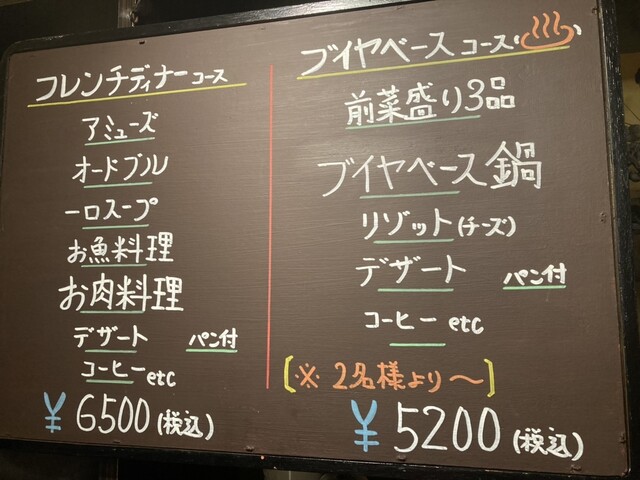 フレンチディナーコース
アミューズ
オードブル
一口スープ
お魚料理
お肉料理
デザート パン付
コーヒーetc
¥6500(税込)
ブイヤベースコース♨
前菜盛り3品
ブイヤベース鍋
リゾット(チーズ)
デザート パン付
コーヒー etc
[※2名様より〜]
¥5200(税込)